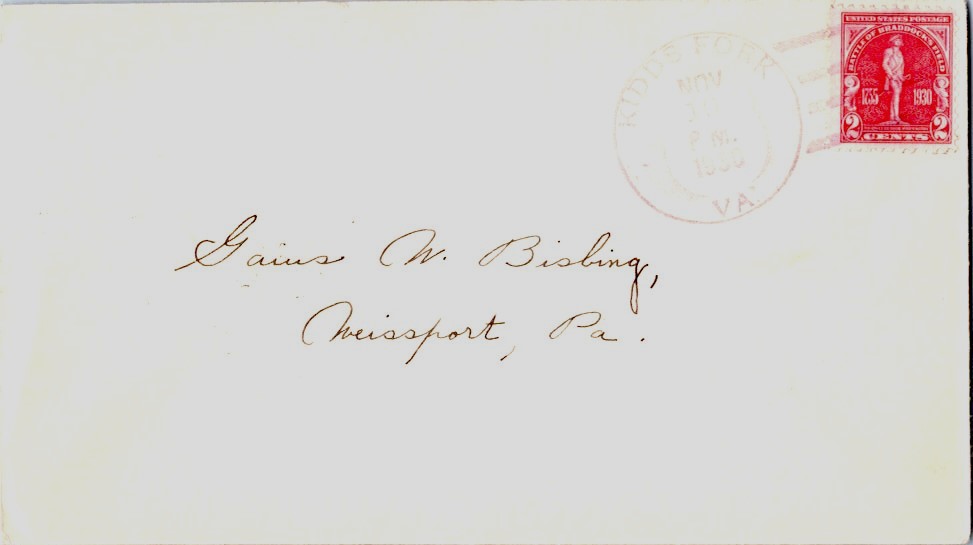 UNITED STATES POSTAGE
BATTLE OF BRADDOCK'S FIELD
1755 1930
2 CENTS 2
KIDDS FORK
NOV
P.M.
VA.
Gaius W. Bisbing,
Weissport, Pa.